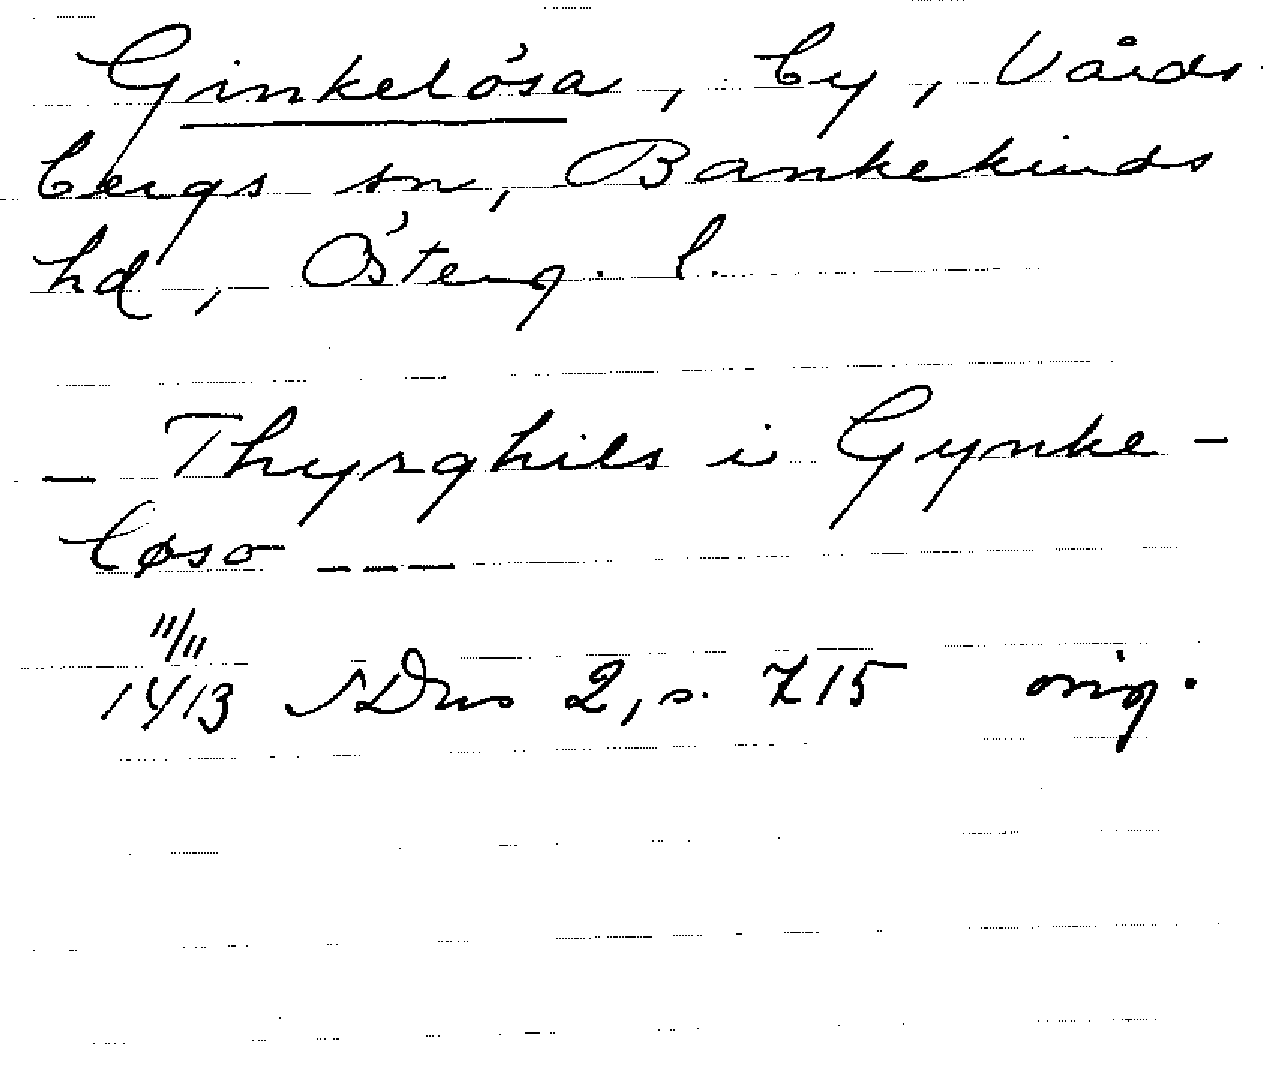 Ginkelösa, by, Vårds
bergs sn, Bankekinds
hd, Österg. l.
— Thyrghils i Gynke-
løso – – –
11/11
1413 SDns 2, s. 715 orig.